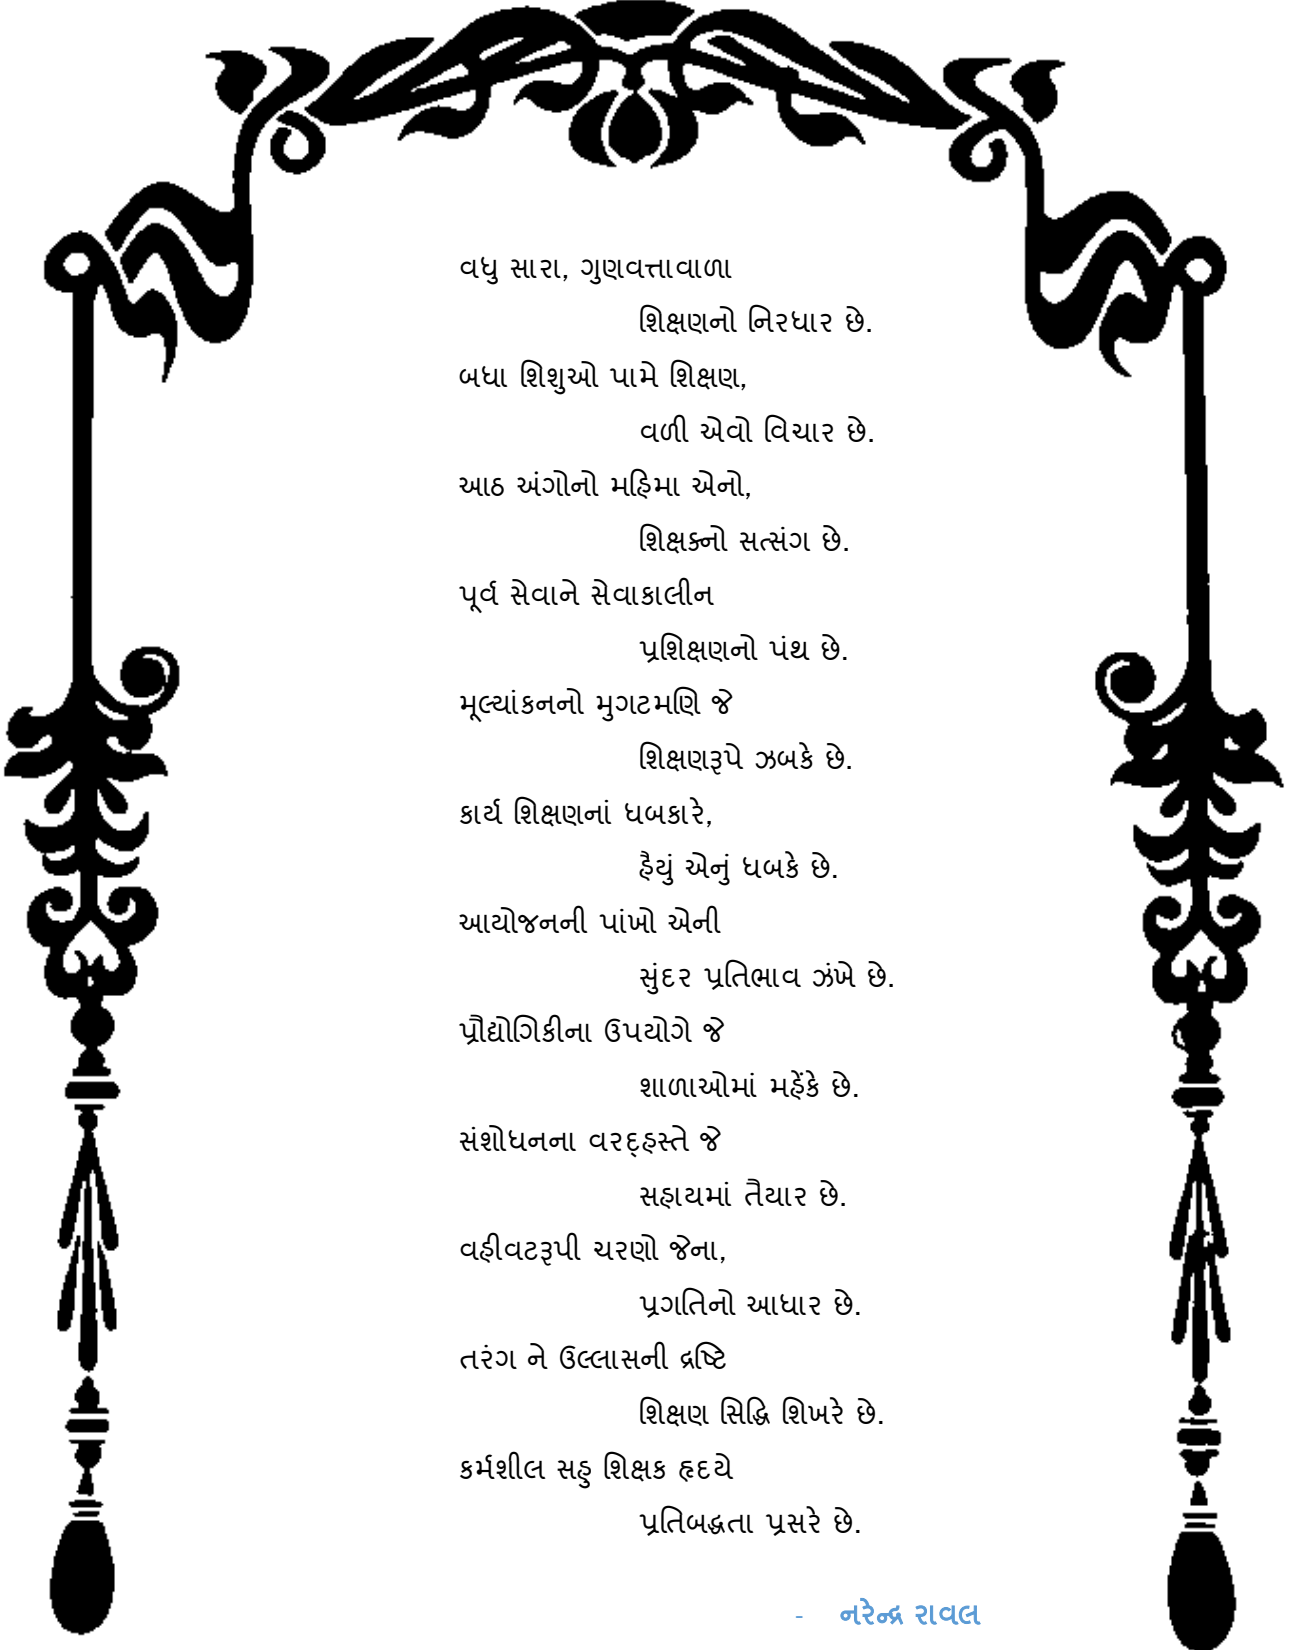 વધુ સારા, ગુણવત્તાવાળા
શિક્ષણનો નિરધાર છે.
બધા શિશુઓ પામે શિક્ષણ,
વળી એવો વિચાર છે.
આઠ અંગોનો મહિમા એનો,
શિક્ષક્નો સત્સંગ છે.
પૂર્વ સેવાને સેવાકાલીન
પ્રશિક્ષણનો પંથ છે.
મૂલ્યાંકનનો મુગટમણિ જે
શિક્ષણરૂપે ઝબકે છે.
કાર્ય શિક્ષણનાં ધબકારે,
હૈયું એનું ધબકે છે.
આયોજનની પાંખો એની
સુંદર પ્રતિભાવ ઝંખે છે.
પ્રૌદ્યોગિકીના ઉપયોગે જે
શાળાઓમાં મહેંકે છે.
સંશોધનના વરદ્હસ્તે જે
સહાયમાં તૈયાર છે.
વહીવટરૂપી ચરણો જેના,
પ્રગતિનો આધાર છે.
તરંગ ને ઉલ્લાસની દ્રષ્ટિ
શિક્ષણ સિદ્ધિ શિખરે છે.
કર્મશીલ સહુ શિક્ષક હૃદયે
પ્રતિબદ્ધતા પ્રસરે છે.
- નરેન્દ્ર રાવલ